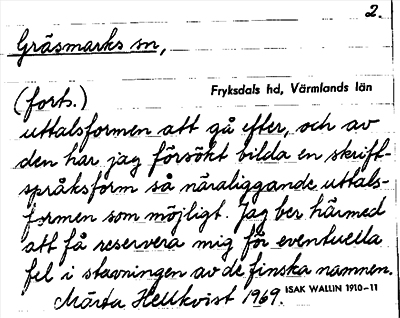 2.
Gräsmarks sn,
Fryksdals hd, Värmlands län
(forts.)
uttalsformen att gå efter, och av
den har jag försökt bilda en skrift-
språksform så näraliggande uttals-
formen som möjligt. Jag ber härmed
att få reservera mig för eventuella
fel i stavningen av de finska namnen.
ISAK WALLIN 1910-11
Märta Hellkvist 1969.